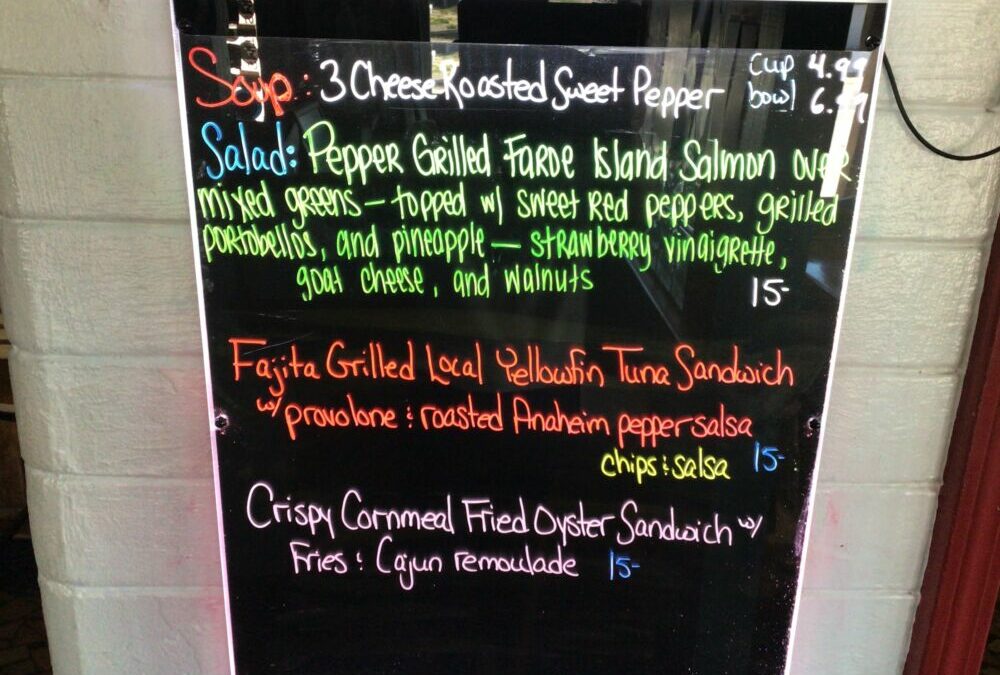 Soup: 3 Cheese Roasted Sweet Pepper cup 4.99
bowl 6.99
Salad: Pepper Grilled Faroe Island Salmon over
mixed greens — topped w/ sweet red peppers, grilled
portobellos, and pineapple — strawberry vinaigrette,
goat cheese, and walnuts 15-
Fajita Grilled Local Yellowfin Tuna Sandwich
w/ provolone & roasted Anaheim pepper salsa
chips & salsa 15-
Crispy Cornmeal Fried Oyster Sandwich w/
Fries & Cajun remoulade 15-